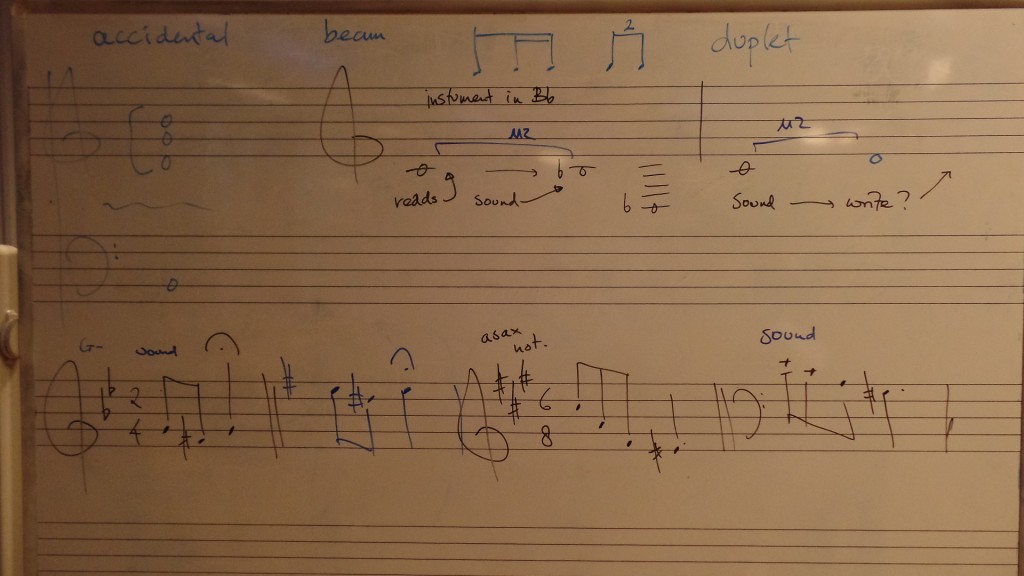 accidental beam 2 duplet
instument in Bb
M2 M2
reads sound b Sound write?
G- sound asax not. sound
2 4 6 8